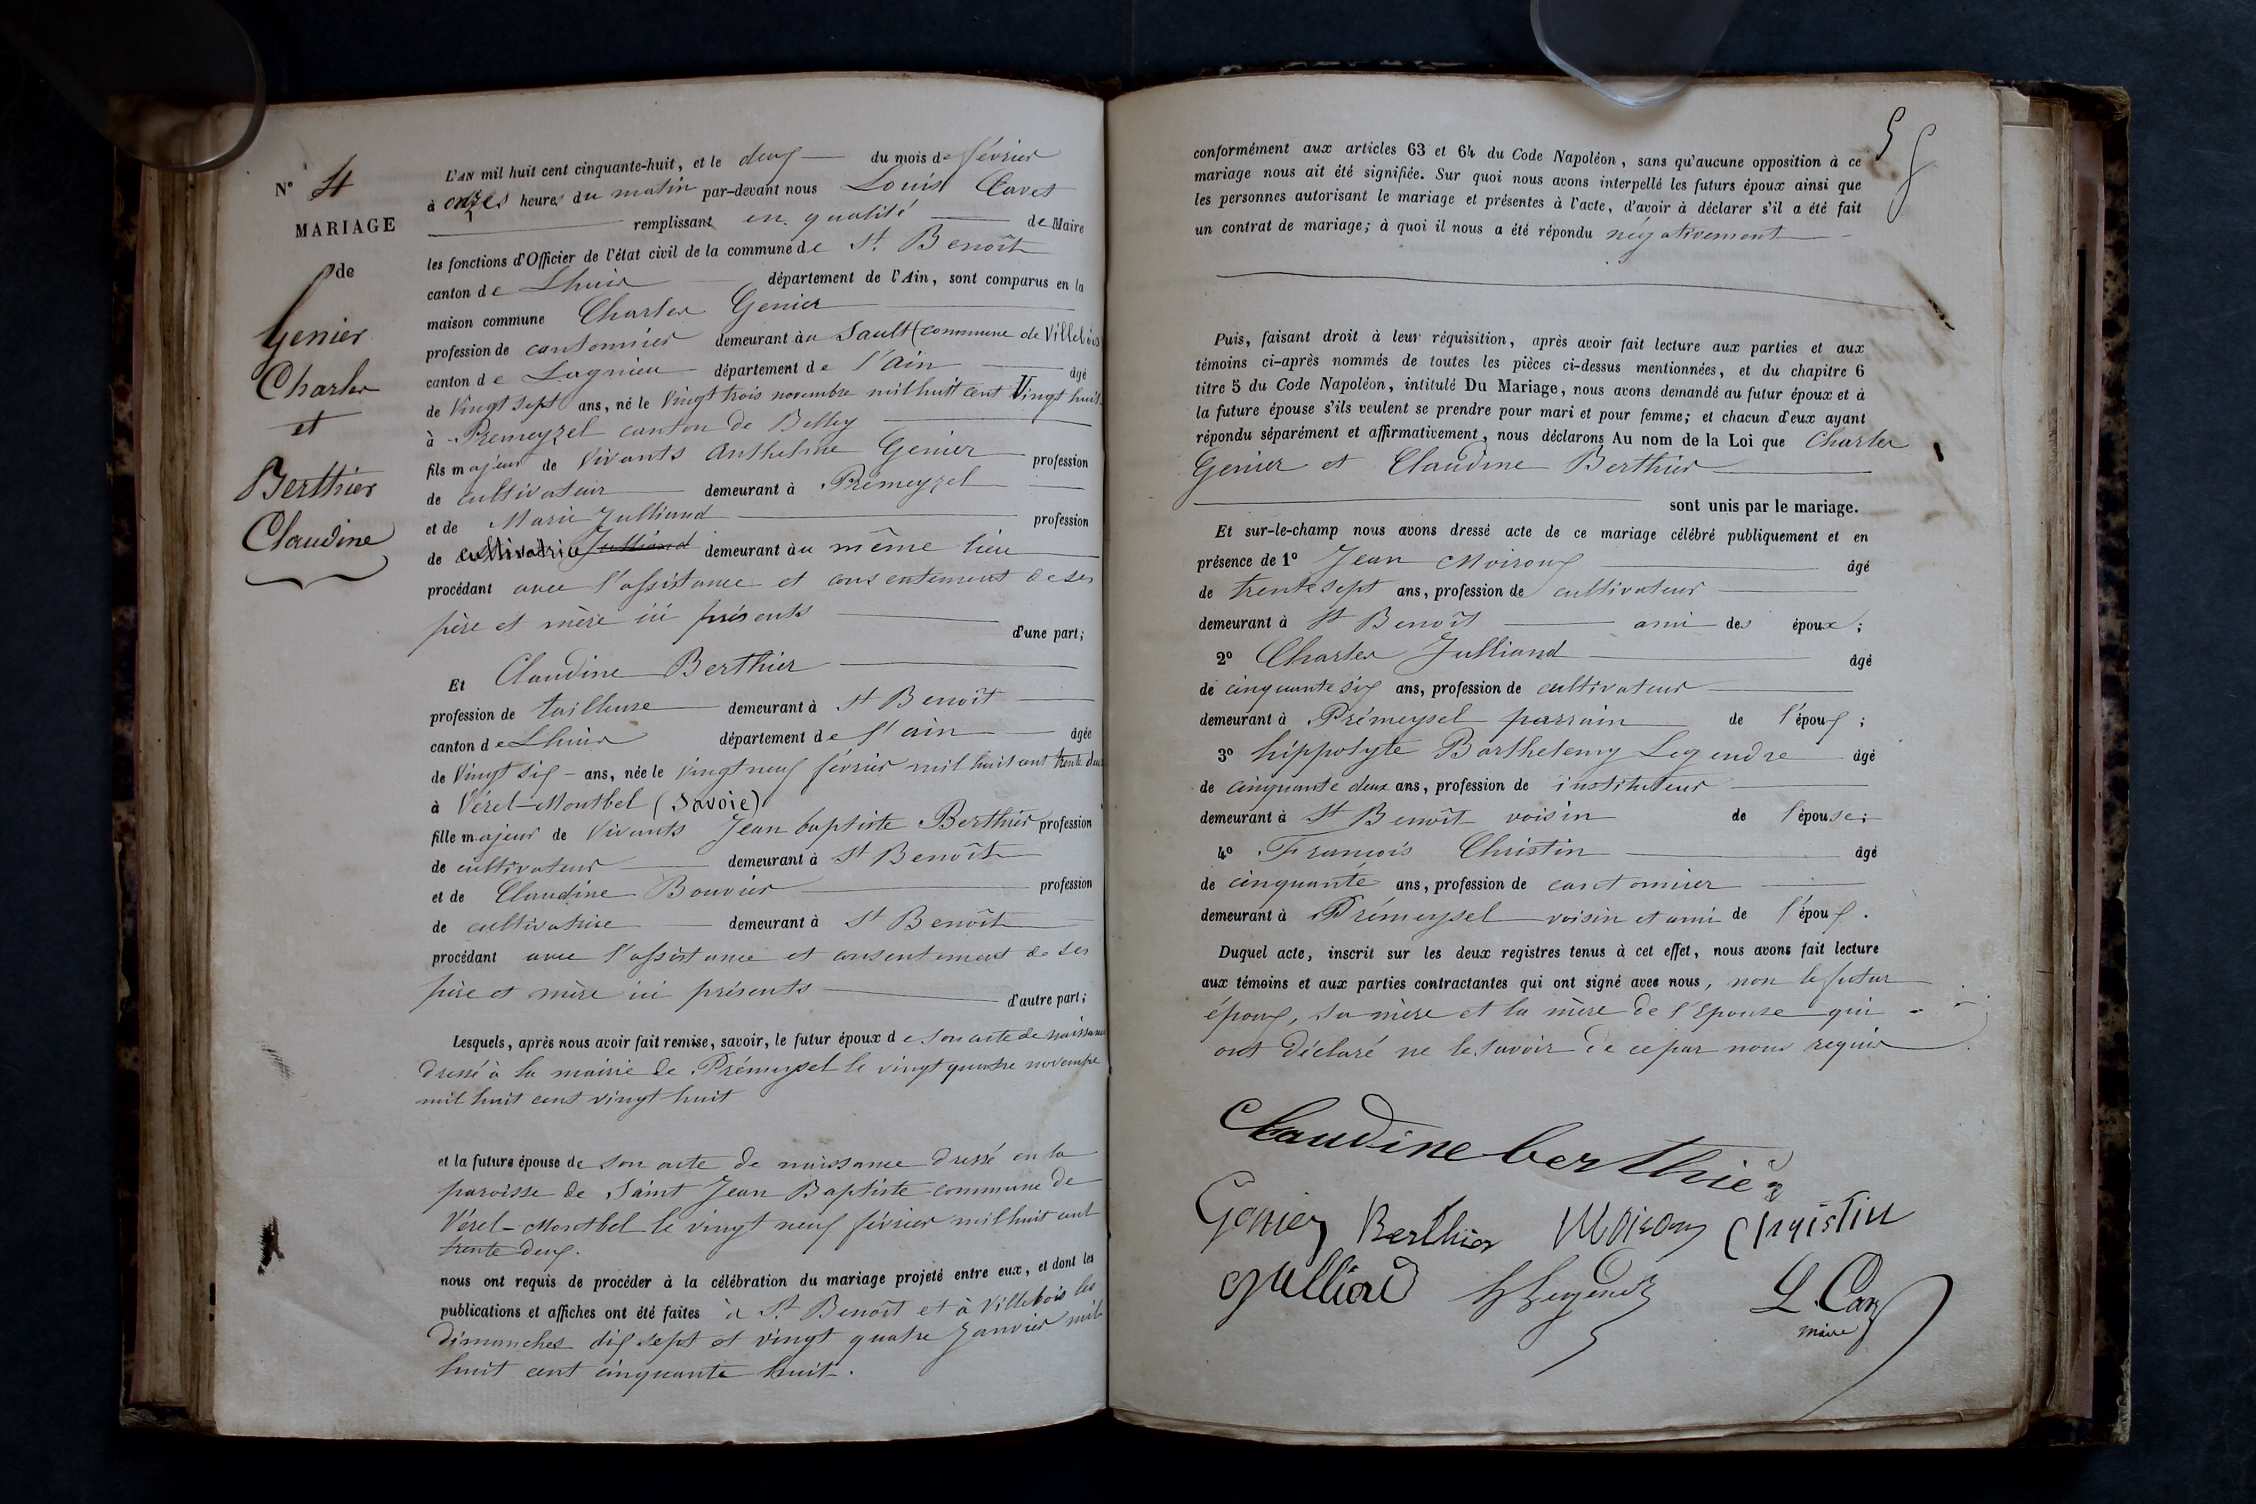 N° 4
MARIAGE
de
Genier
Charles
et
Berthier
Claudine
L'AN mil huit cent cinquante-huit, et le deux du mois de février
à onzes heures du matin par-devant nous Louis Cavet
remplissant en qualité de Maire
les fonctions d'Officier de l'état civil de la commune de St Benoît
canton de Lhuis département de l'Ain, sont comparus en la
maison commune Charles Genier
profession de cantonnier demeurant au Sault (commune de Villebois
canton de Lagnieu département de l'ain âgé
de Vingt sept ans, né le Vingt trois novembre mil huit cent Vingt huit
à Prémeyzel canton de Belley
fils majeur de Vivants Anthelme Genier profession
de cultivateur demeurant à Prémeyzel
et de Marie Julliand profession
de cultivatrice Julliand demeurant au même lieu
procédant avec l'assistance et consentement de ses
père et mère ici présents d'une part;
Et Claudine Berthier
profession de tailleuse demeurant à St Benoît
canton de Lhuis département de l'ain âgée
de Vingt six ans, née le vingt neuf février mil huit cent trente deux
à Vérel-Montbel (Savoie)
fille majeur de Vivants Jean baptiste Berthier profession
de cultivateur demeurant à St Benoît
et de Claudine Bouvier profession
de cultivatrice demeurant à St Benoît
procédant avec l'assistance et consentement de ses
père et mère ici présents d'autre part;
Lesquels, après nous avoir fait remise, savoir, le futur époux de son acte de naissance
dressé à la mairie de Prémeysel le vingt quatre novembre
mil huit cent vingt huit
et la future épouse de son acte de naissance dressé en la
paroisse de Saint Jean Baptiste commune de
Vérel-Montbel le vingt neuf février mil huit cent
trente deux.
nous ont requis de procéder à la célébration du mariage projeté entre eux, et dont les
publications et affiches ont été faites à St Benoît et à Villebois les
dimanches dix sept et vingt quatre Janvier mil
huit cent cinquante huit.
conformément aux articles 63 et 64 du Code Napoléon, sans qu'aucune opposition à ce
mariage nous ait été signifiée. Sur quoi nous avons interpellé les futurs époux ainsi que
les personnes autorisant le mariage et présentes à l'acte, d'avoir à déclarer s'il a été fait
un contrat de mariage; à quoi il nous a été répondu négativement
Puis, faisant droit à leur réquisition, après avoir fait lecture aux parties et aux
témoins ci-après nommés de toutes les pièces ci-dessus mentionnées, et du chapitre 6
titre 5 du Code Napoléon, intitulé Du Mariage, nous avons demandé au futur époux et à
la future épouse s'ils veulent se prendre pour mari et pour femme; et chacun d'eux ayant
répondu séparément et affirmativement, nous déclarons Au nom de la Loi que Charles
Genier et Claudine Berthier
sont unis par le mariage.
Et sur-le-champ nous avons dressé acte de ce mariage célébré publiquement et en
présence de 1° Jean Moiroux âgé
de trente sept ans, profession de cultivateur
demeurant à St Benoît ami des époux;
2° Charles Julliand âgé
de cinquante six ans, profession de cultivateur
demeurant à Prémeysel parrain de l'époux;
3° hippolyte Barthelemy Legendre âgé
de cinquante deux ans, profession de instituteur
demeurant à St Benoît voisin de l'épouse;
4° François Christin âgé
de cinquante ans, profession de cantonnier
demeurant à Prémeysel voisin et ami de l'époux.
Duquel acte, inscrit sur les deux registres tenus à cet effet, nous avons fait lecture
aux témoins et aux parties contractantes qui ont signé avec nous, non le futur
époux, sa mère et la mère de l'Epouse qui
ont déclaré ne le savoir de ce par nous requis
Claudine berthier
Genier Berthier Moiroux Christin
Julliard HLegendre L. Cavet
maire